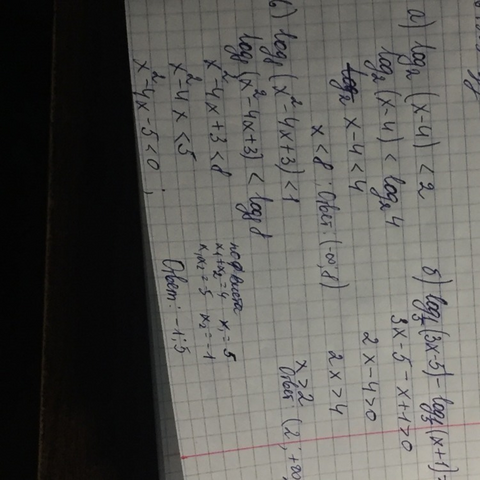 а) log₂ (x-4) < 2
log₂ (x-4) < log₂ 4
x-4 < 4
x < 8 Ответ: (-∞, 8)
в) log₈ (x²-4x+3) < 1
log₈ (x²-4x+3) < log₈ 8
x²-4x+3 < 8
x²-4x < 5
x²-4x-5 < 0 ;
x₁+x₂=4 x₁=5
x₁x₂=-5 x₂=-1
Ответ: -1; 5
б) (3x-5) - (x+1)
3x-5-x+1 > 0
2x-4 > 0
2x > 4
x > 2
Ответ: (2, +∞